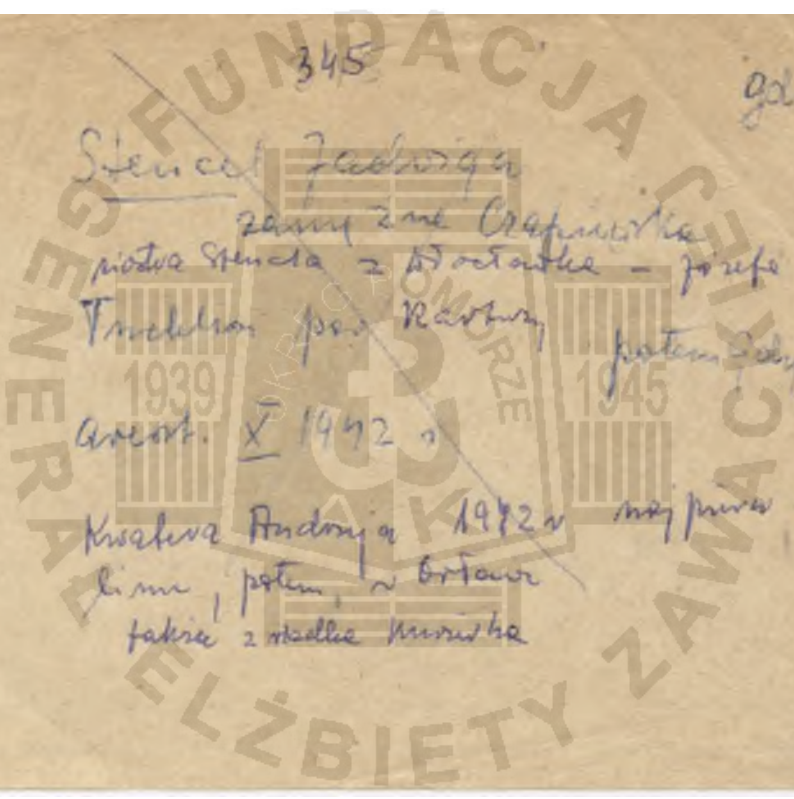 345
gd
Stencel Jadwiga
zamężna Czapiewska
siostra Stencla z Włocławka – Józefa
Tuchlin pow Kartuzy
potem Gdy
areszt. X 1942 r
Kwatera Andrzeja 1942 r najpierw
potem, w Orłowie
także z rzadka
FUNDACJA GENERAŁ ELŻBIETY ZAWACKIEJ
OKRĘG POMORZE
1939 1945
AK